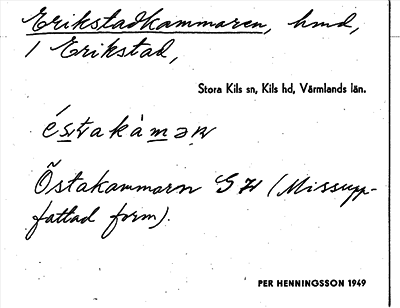 Erikstadkammaren, hmd,
i Erikstad,
Stora Kils sn, Kils hd, Värmlands län.
Östakammarn GK (Missupp-
fattad form).
PER HENNINGSSON 1949